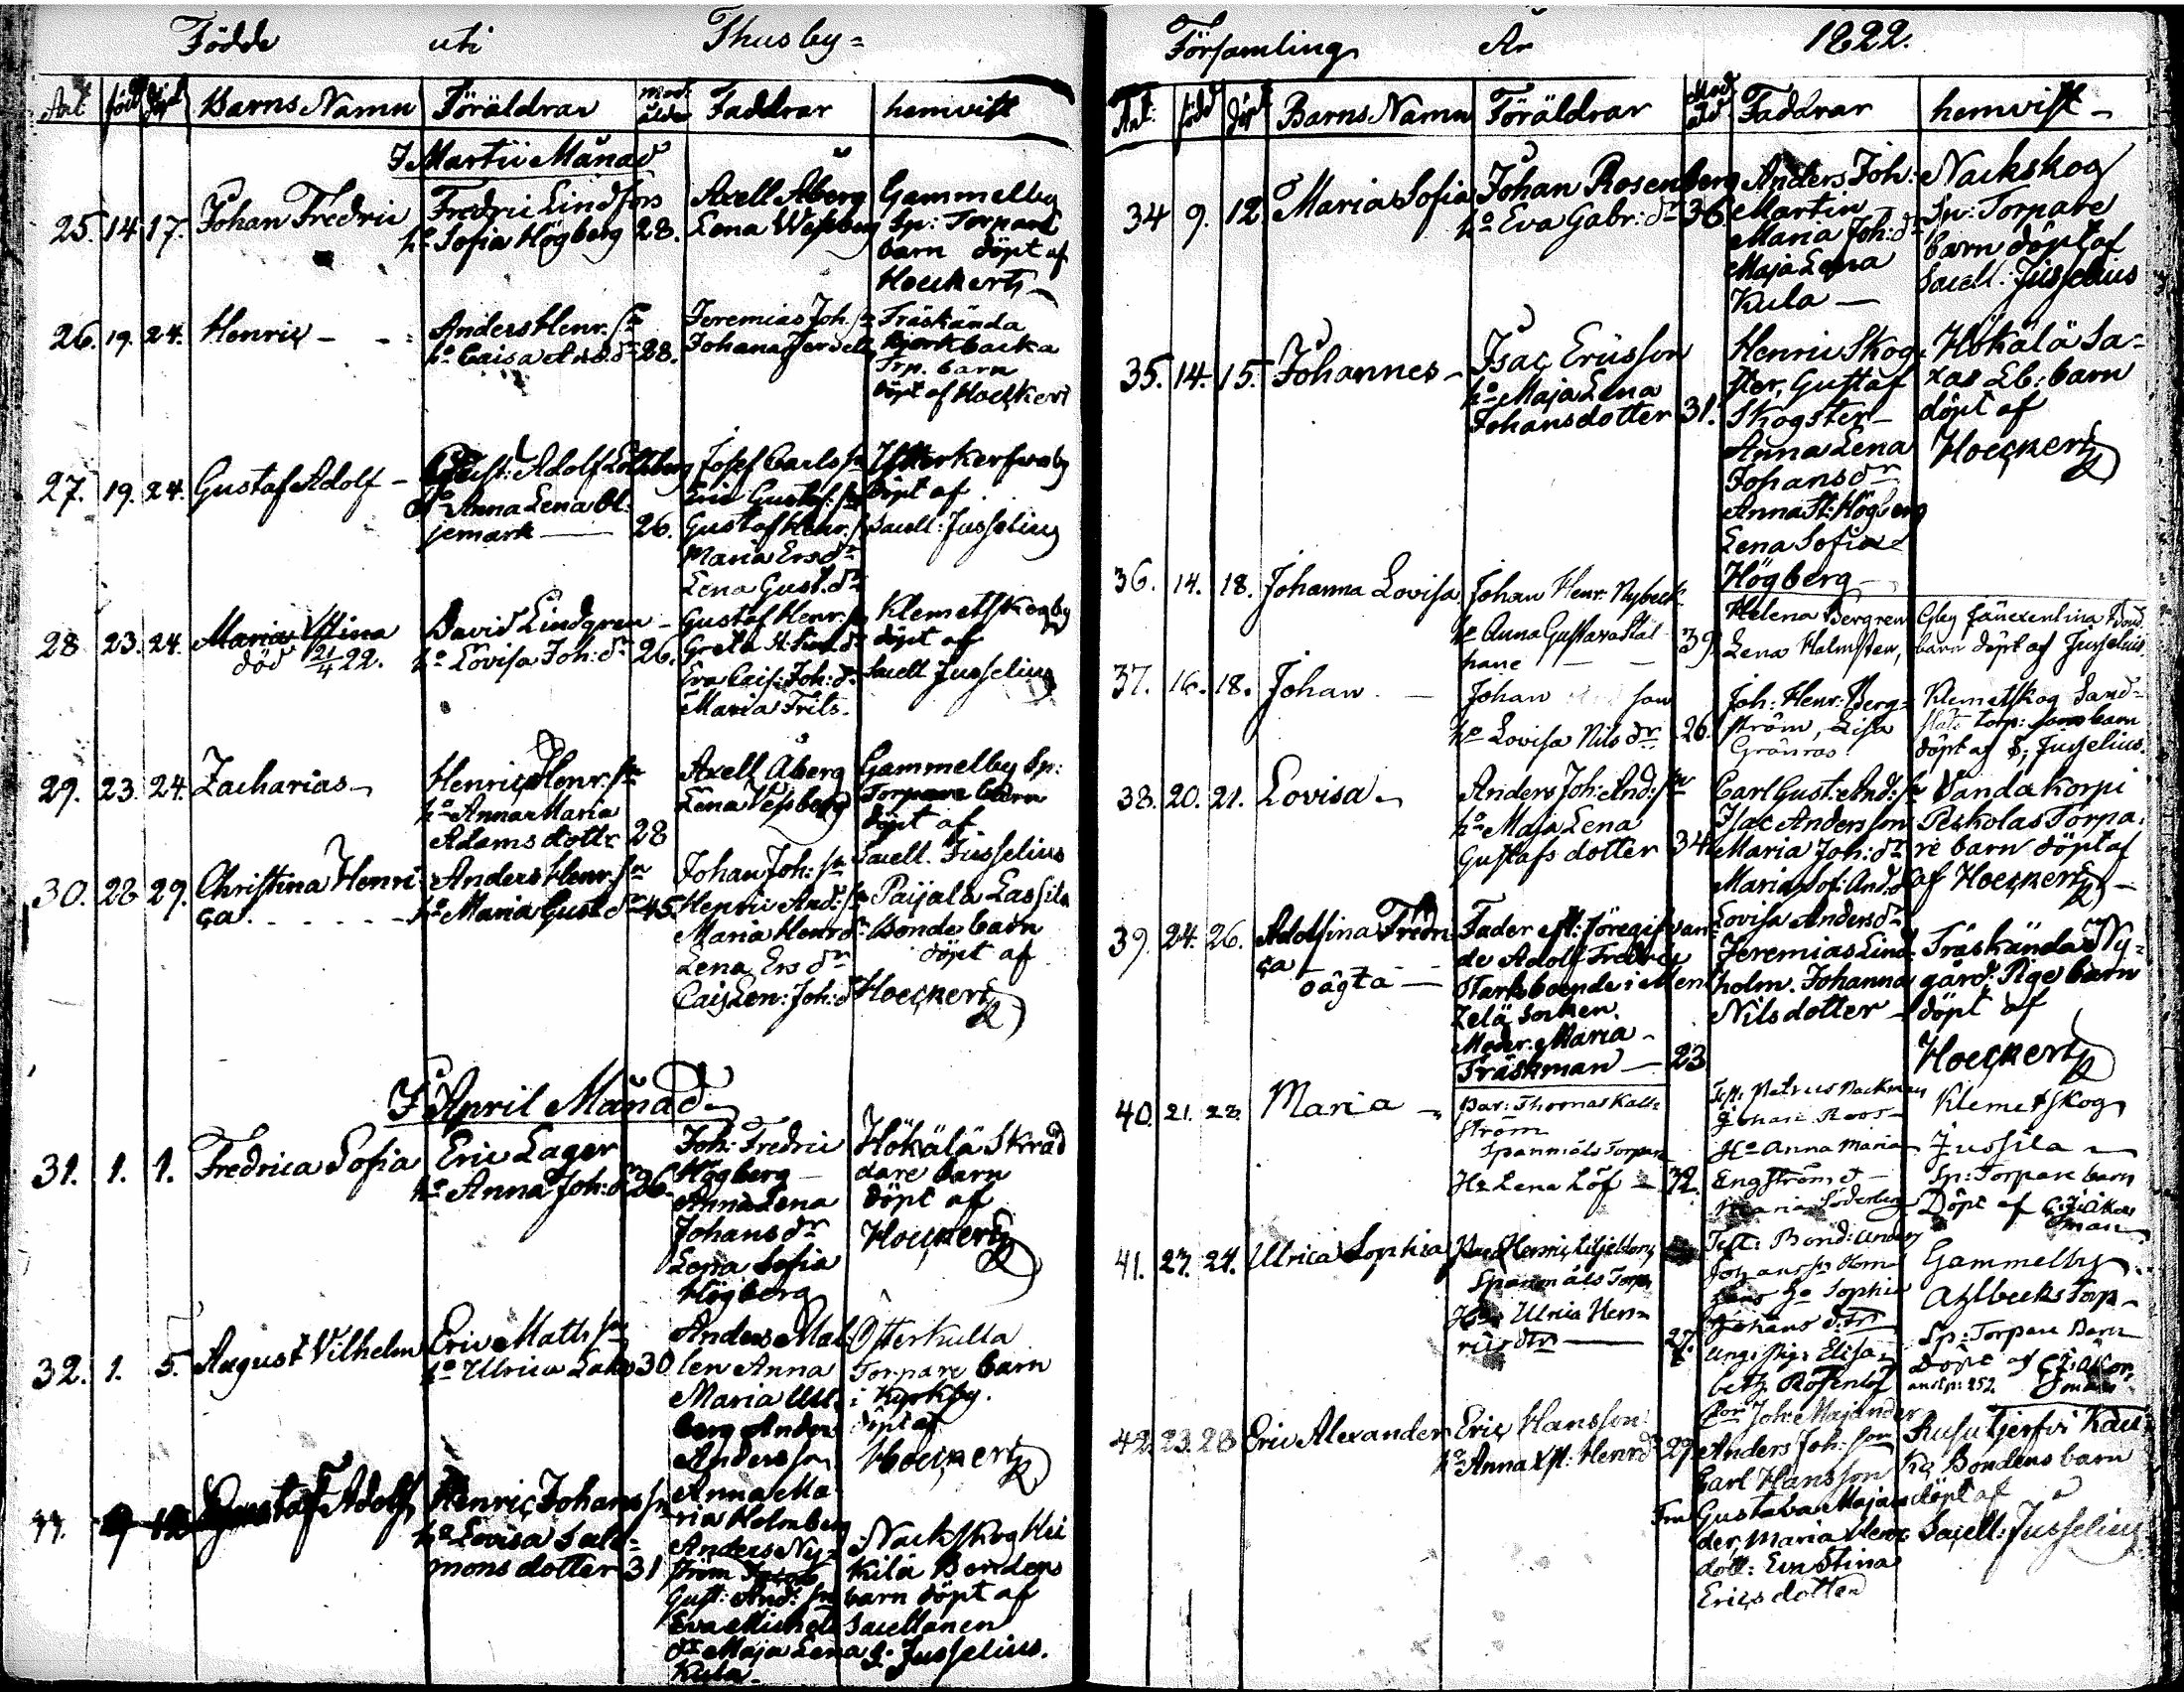 Födde uti Thusby=
Ant född döpt Barns Namn Föräldrar Mod: ålder Faddrar hemvist
I Martii Månad
25. 14. 17. Johan Fredric
Fredric Lindfors
h:o Sofia Högberg 28.
Axell Åberg
Lena Wessberg
Gammelby
Sp: Torpare
barn döpt af
Hoeckertz
26. 19. 24. Henric
Anders Henr. sn
h:o Caisa And. dr 28.
Jeremias Joh. sn
Johana
Träskända
Björkbacka
Trp. barn
döpt af Hoeckert
27. 19. 24. Gustaf Adolf
Gust: Adolf
h:o Anna Lena Ol:
jemark 26.
Josef Carls sn
Eric Gustaf. sn
Gustaf Henr. sn
Maria Ers dr
Lena Gust. dr
döpt af
Sacell: Jusselius
28 23. 24. Maria Stina
död 21/4 22.
David Lindgren
h:o Lovisa Joh: dr 26.
Gustaf Henr. sn
Greta
Eva Cais. Joh: dr
Maria Frits.
Klemetskogby
döpt af
Sacell Jusselius
29. 23. 24. Zacharias
Henric Henr. sn
h:o Anna Maria
Adams dotter 28
Axell Åberg
Lena Wessberg
Gammelby Sp:
Torpare barn
döpt af
Sacell. Jusselius
30. 28 29. Christina Henri
ca
Anders Henr. sn
h:o Maria Gust dr 45.
Johan Joh: sn
Henric And: sn
Maria Henr dr
Lena Ers dr
Cais Len: Joh: dr
Paijala Lassila
Bonde barn
döpt af
Hoeckertz
I April Månad
31. 1. 1. Fredrica Sofia
Eric Lager
h:o Anna Joh: dr 36.
Joh: Fredric
Högberg
Anna Lena
Johans dr
Lena Sofia
Högberg
Hökälä Skräd
dare barn
döpt af
Hoeckertz
32. 1. 5. August Vilhelm
Eric Matts sn
h:o Ulrica 30
Anders Mal:
len Anna
Maria Ull:
berg Anders
Andersson
Anna Ma
ria Holmberg
Otterkulla
Torpare barn
i Kyrkby.
döpt af
Hoeckertz
Gustaf Adolf
Henric Johans sn
h:o Lovisa Salo=
mons dotter 31
Anders Ny=
ström
Gust: And: sn
Eva Michels
dr Maja Lena
Kula
Nackskog
kilä Bondens
barn döpt af
Sacellanen
G. Jusselius.
Församling År 1822.
Ant. född döpt Barns Namn Föräldrar Mod åld Faddrar hemvist
34 9. 12. Maria Sofia
Johan Rosenberg
h:o Eva Gabr: dr 36
Anders Joh:
Martin
Maria Joh: dr
Maja Lena
Kula
Nackskog
Sp: Torpare
barn döpt af
Sacell: Jusselius
35. 14. 15. Johannes
Isac Ericsson
h:o Maja Lena
Johansdotter 31.
Henric Skog
ster, Gustaf
Skogster
Anna Lena
Johans dr
Anna St: Högberg
Lena Sofia
Högberg
Hökälä Sa=
xas Lb: barn
döpt af
Hoeckertz
36. 14. 18. Johanna Lovisa
Johan Henr. Nybeck
h:o Anna Gustava Stål
hane 39.
Helena Bergren
Lena Holmsten,
barn döpt af Jusselius.
37. 16. 18. Johan
Johan son
h:o Lovisa Nils dr 26.
Joh: Henr: Berg=
ström, Lisa
Grönros
Klemetskog Sand=
Torp: barn
döpt af S; Jusselius.
38. 20. 21. Lovisa
Anders Joh: And: sn
h:o Maja Lena
Gustafs dotter 34.
Carl Gust: And: sn
Isac Andersson
Maria Joh: dr
Maria Sof: And: dr
Lovisa Anders dr
Vanda Korpi
Peskolas Torpa:
re barn döpt af
af Hoeckertz
39. 24. 26. Adolfina Fredri
ca
oägta
Fader est: föregifvan:
de Adolf Fredric
Stark boende i Men
zelä Socken.
Moder. Maria
Träskman 23
Jeremias Lind
holm. Johanna
Nils dotter
Träskända Ny=
gård: Pige barn
döpt af
Hoeckertz
40. 21. 22. Maria
Par: Thomas Kall=
ström
Spanmåls Torpare
H:o Lena Löf 32.
Test: Petrus Nackman
Johan Roos
H:o Anna Maria
Engström
Maria Söderberg
Klemetskog
Jussila
Sp: Torpare barn
Döpt af
41. 23. 24. Ulrica Sophia
Par: Henric
Spanmåls Torp:
H:o Ulrica Hen
rics dtr 27.
Test: Bond: Anders
Johansson
hans h:o Sophia
Johans dtr
Ung: Pig: Elisa
beth Rosenlöf
Gammelby
Ahlbecks Torp
Sp: Torpare Barn
Döpt af
42. 23. 28 Eric Alexander
Eric Hansson
h:o Anna Henr dr 29
Joh: Majander
Anders Joh: son
Carl Hansson
Fru Gustava Majan
der Maria Henr
dott: Eva Stina
Erics dotter
Rusutjerfvi
Bondens barn
döpt af
Sacell: Jusselius